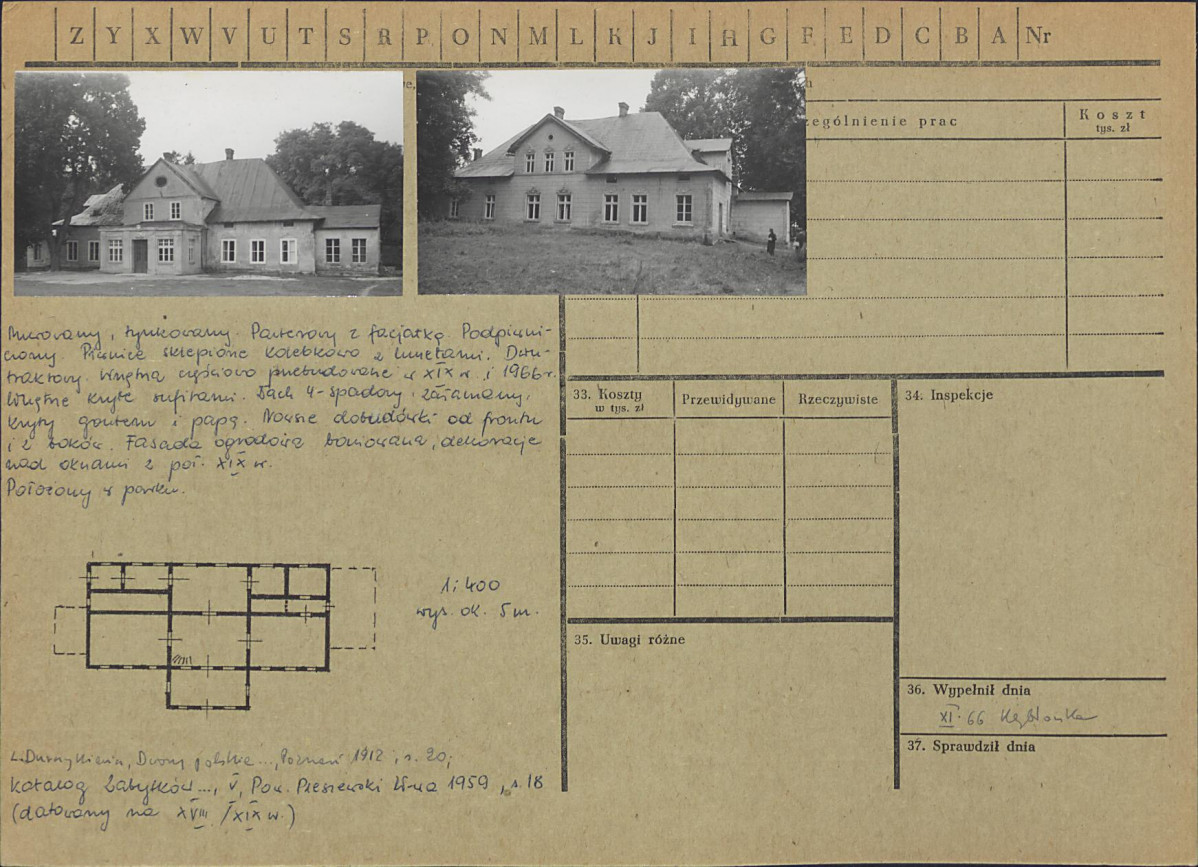 Z Y X W V U T S R P O N M L K J I H G F E D C B A Nr
zególnienie prac
Koszt
tys. zł
Murowany, tynkowany. Parterowy z facjatką. Podpiwni-
czony. Piwnice sklepione kolebkowo z lunetami. Dwu-
traktowy. Wnętrza częściowo przebudowane w XIX w. i 1966 r.
Wnętrze kryte sufitami. Dach 4-spadowy, załamany,
kryty gontem i papą. Nowsze dobudówki od frontu
i z boków. Fasada ogrodowa boniowana, dekoracje
nad oknami z poł. XIX w.
Położony w parku.
1:400
wys. ok. 5 m.
L. Durczykiewicz, Dwory polskie ..., Poznań 1912, s. 20;
Katalog Zabytków ..., V, Pow. Pleszewski W-wa 1959, s. 18
(datowany na XVIII/XIX w.)
33. Koszty
w tys. zł
Przewidywane
Rzeczywiste
34. Inspekcje
35. Uwagi różne
36. Wypełnił dnia
XI. 66
37. Sprawdził dnia